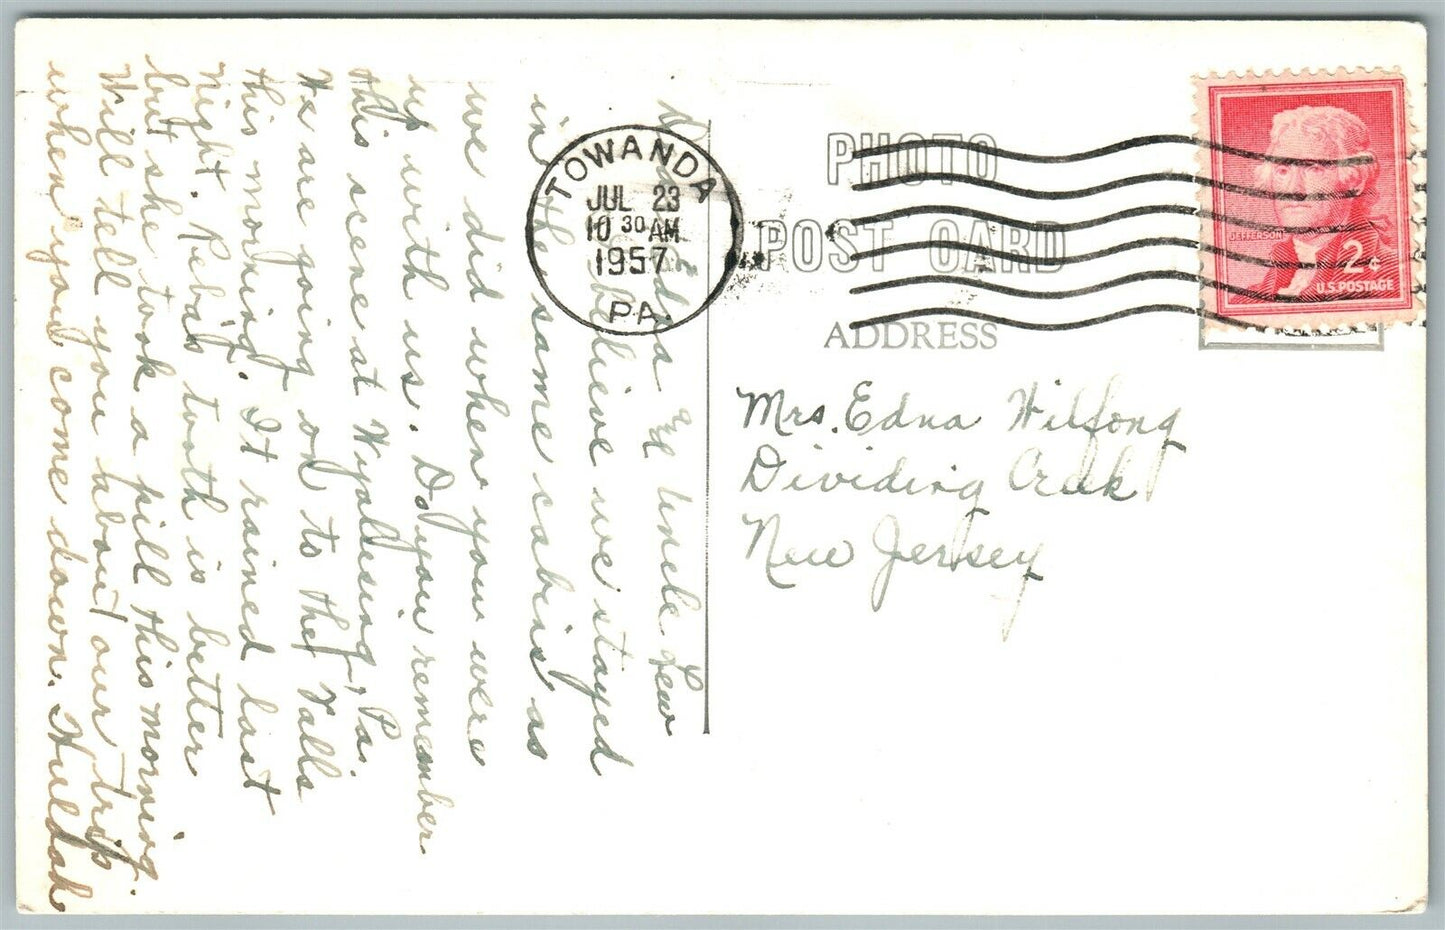 Dear Edna & Uncle Lew
I believe we stayed
in the same cabins as
we did when you were
up with us. Do you remember
this scene at Wyalusing, Pa.
We are going on to the Falls
this morning. It rained last
night. Reba's tooth is better
but she took a pill this morning.
Will tell you about our trip
when you come down. Huldah
TOWANDA
JUL 23
10 30 AM
1957
PA.
PHOTO
POST CARD
ADDRESS
JEFFERSON
2¢
U.S. POSTAGE
Mrs. Edna Wilfong
Dividing Creek
New Jersey